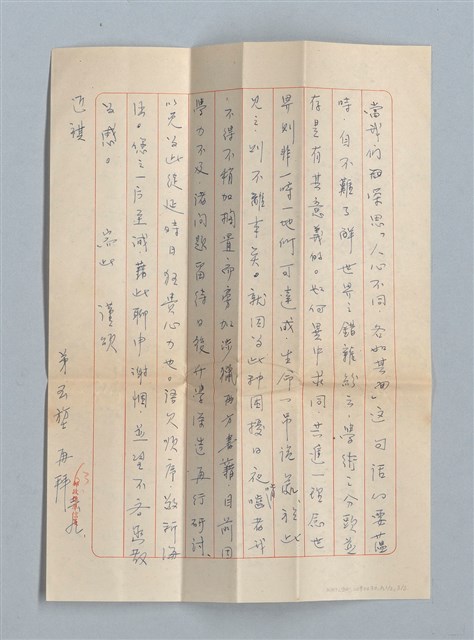 當我們細深思「人心不同各如其面」這句話的要蘊
時,自不難了解世界之錯雜紛云,學術之分頭並
存是有其意義的。如何異中求同共進一理念世
界則非一時一地所可達成,生命一吊詭氣,雖此
見之,則不離事矣。就因為此種困擾日夜嚙著我
不得不稍加擱置而參加涉獵西方書籍,目前因
學力不及,諸問題留待日後升學深造再行研討,
以免為此徒延時日狂費心力也。語欠順序,敬祈海
涵。您之一片至誠藉此聊申謝悃並望不吝賜教
為感。 耑此 謹頌
近祺
弟 再拜